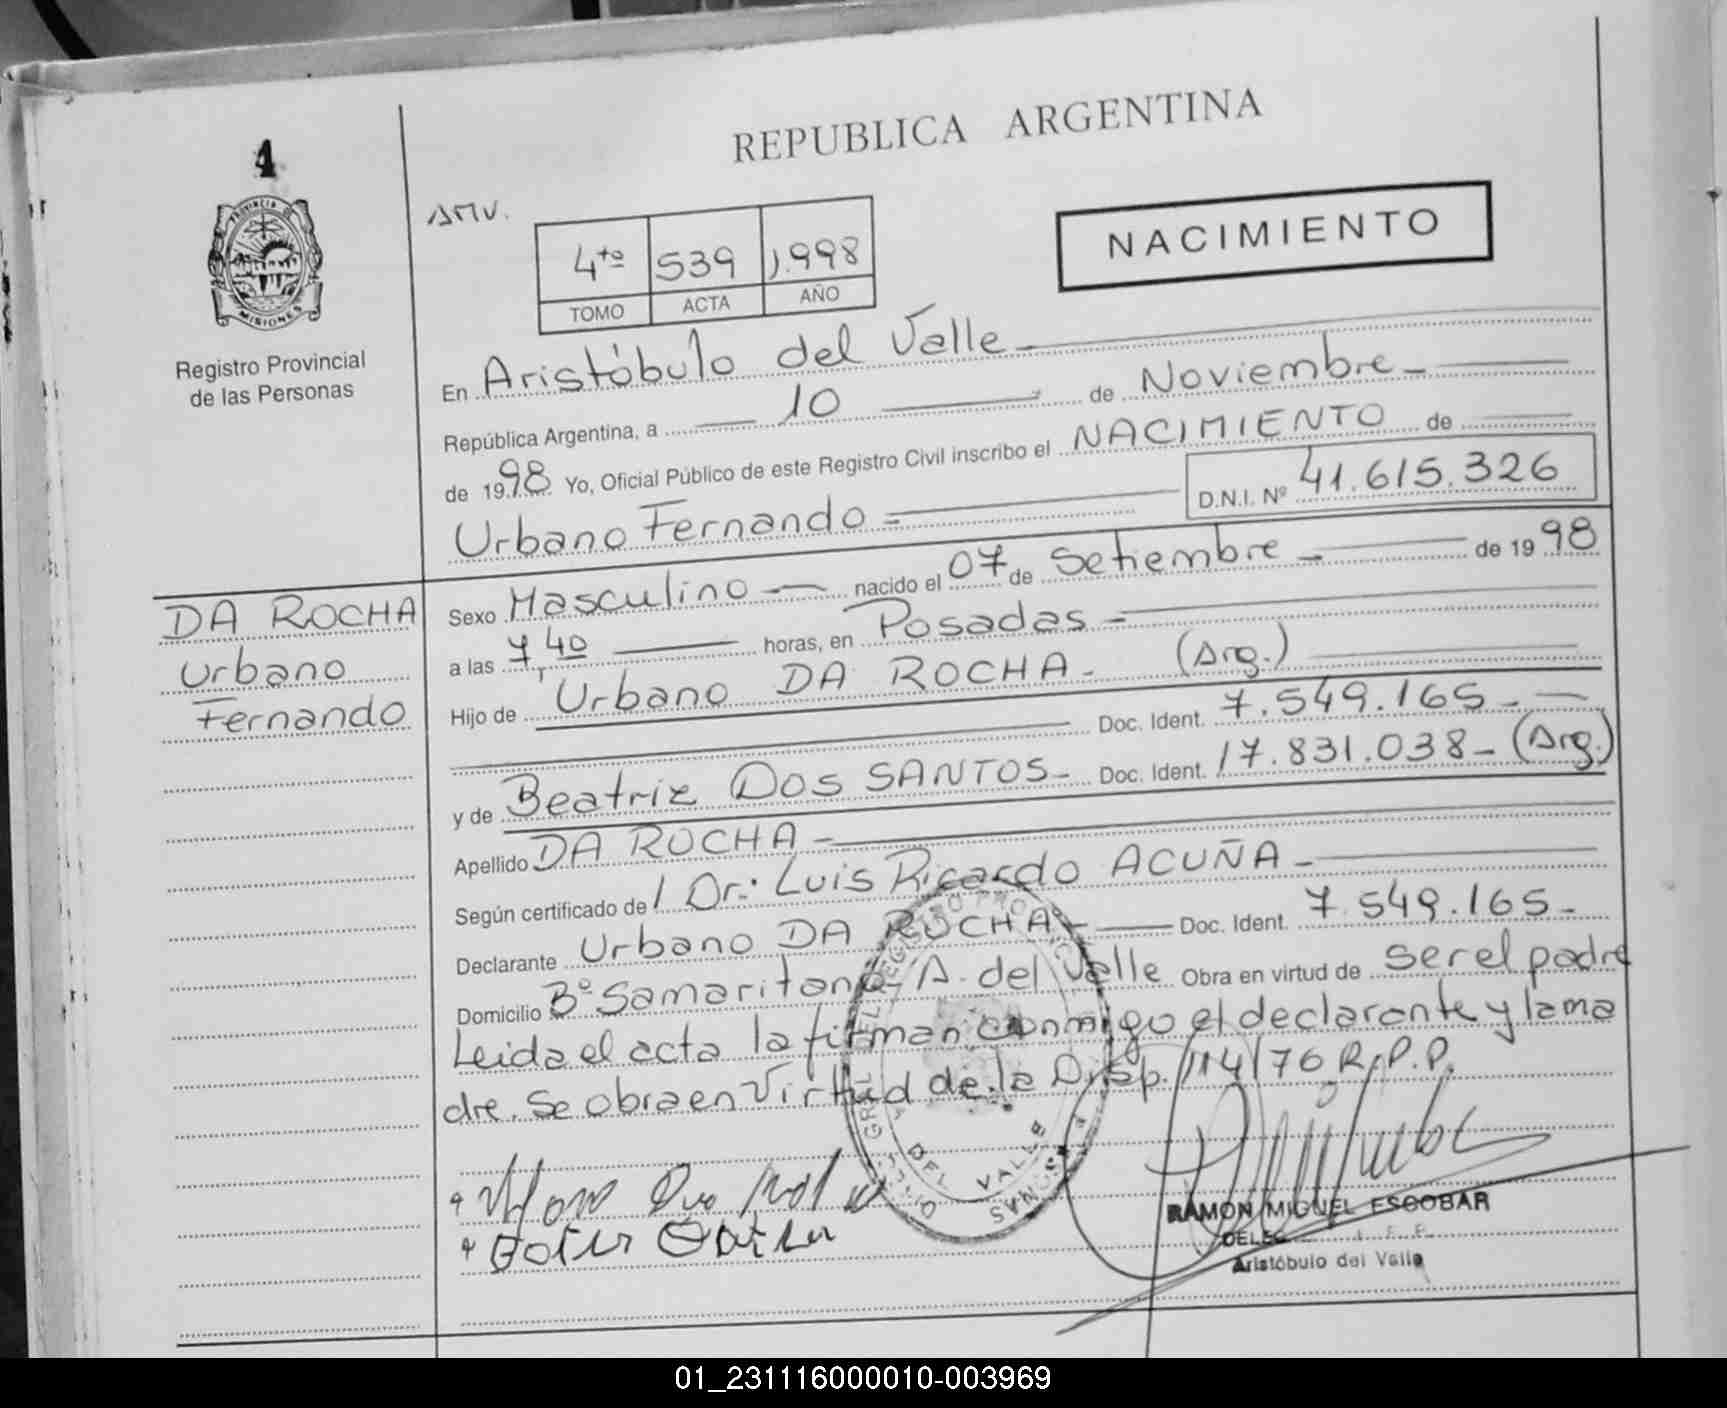 REPUBLICA ARGENTINA
4
PROVINCIA DE
MISIONES
Registro Provincial
de las Personas
AMV.
4to 539 1.998
TOMO ACTA AÑO
NACIMIENTO
En Aristóbulo del Valle
República Argentina, a 10 de Noviembre
de 1998 Yo, Oficial Público de este Registro Civil inscribo el NACIMIENTO de
Urbano Fernando D.N.I. Nº 41.615.326
DA ROCHA
Urbano
Fernando
Sexo Masculino nacido el 07 de Setiembre de 1998
a las 7,40 horas, en Posadas
Hijo de Urbano DA ROCHA (Arg.)
Doc. Ident. 7.549.165
y de Beatriz DOS SANTOS Doc. Ident. 17.831.038 (Arg.)
Apellido DA ROCHA
Según certificado de Dr: Luis Ricardo ACUÑA
Declarante Urbano DA ROCHA Doc. Ident. 7.549.165
Domicilio Bº Samaritano A. del Valle Obra en virtud de ser el padre
Leida el acta la firman conmigo el declarante y la ma
dre. Se obra en Virtud de la Disp. 114/76 R.P.P.
DEL VALLE
RAMON MIGUEL ESCOBAR
Aristóbulo del Valle
01_231116000010-003969